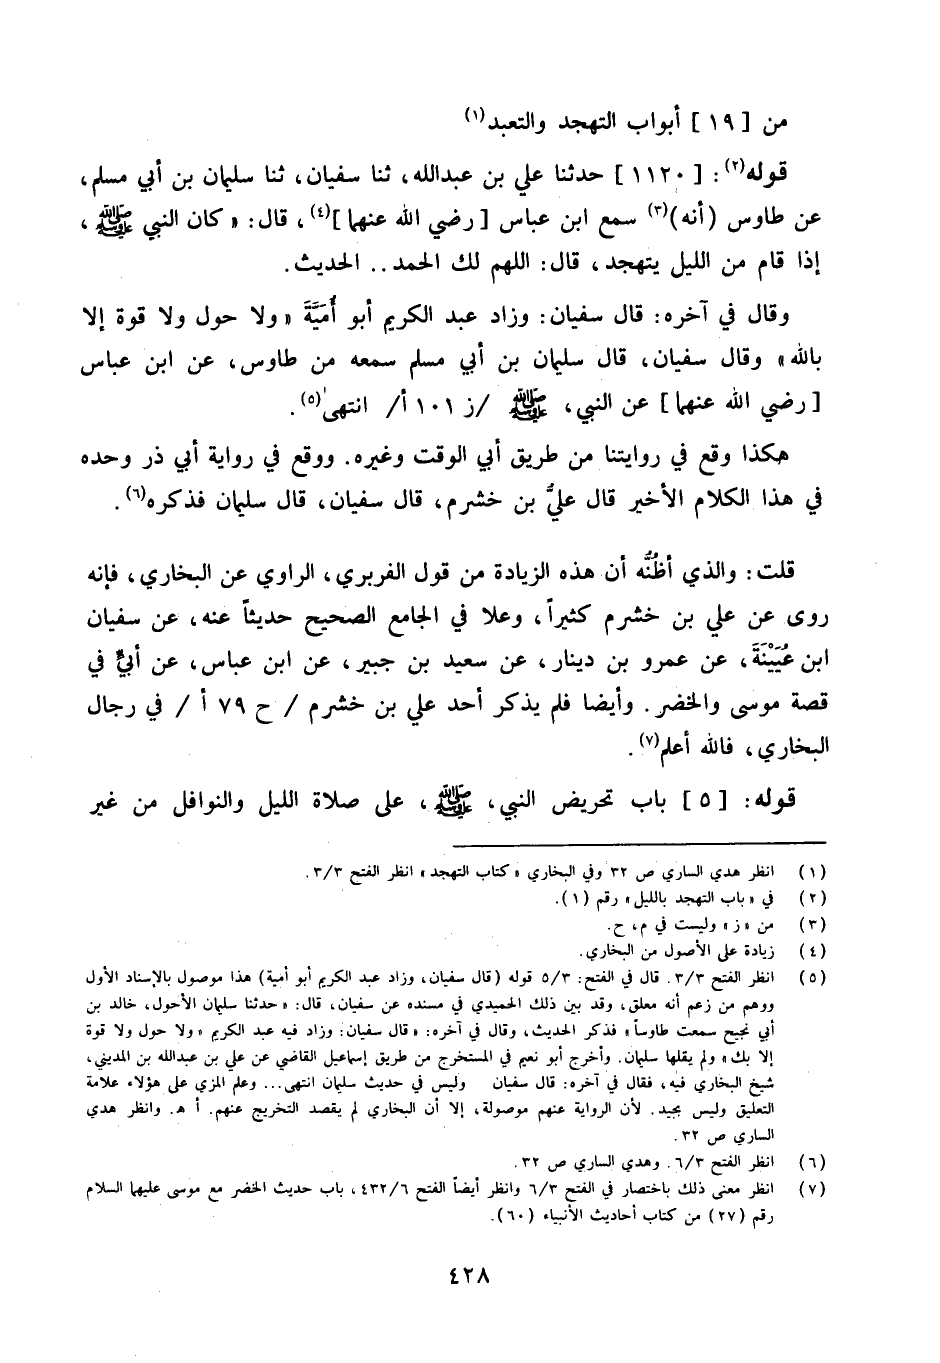 من [١٩] أبواب التهجد والتعبد(١)
قوله(٢): [١١٢٠] حدثنا علي بن عبدالله، ثنا سفيان، ثنا سليمان بن أبي مسلم،
عن طاوس (أنه)(٣) سمع ابن عباس [رضي الله عنهما](٤)، قال: «كان النبي ﷺ،
إذا قام من الليل يتهجد، قال: اللهم لك الحمد.. الحديث.
وقال في آخره: قال سفيان: وزاد عبد الكريم أبو أُمَيَّةَ «ولا حول ولا قوة إلا
بالله» وقال سفيان، قال سليمان بن أبي مسلم سمعه من طاوس، عن ابن عباس
[رضي الله عنهما] عن النبي، ﷺ /ز ١٠١ أ/ انتهى(٥).
هكذا وقع في روايتنا من طريق أبي الوقت وغيره. ووقع في رواية أبي ذر وحده
في هذا الكلام الأخير قال عليُّ بن خشرم، قال سفيان، قال سليمان فذكره(٦).
قلت: والذي أظُنُّه أن هذه الزيادة من قول الفربري، الراوي عن البخاري، فإنه
روى عن علي بن خشرم كثيراً، وعلا في الجامع الصحيح حديثاً عنه، عن سفيان
ابن عُيَيْنَةَ، عن عمرو بن دينار، عن سعيد بن جبير، عن ابن عباس، عن أبيٍّ في
قصة موسى والخضر. وأيضا فلم يذكر أحد علي بن خشرم / ح ٧٩ أ / في رجال
البخاري، فالله أعلم(٧).
قوله: [٥] باب تحريض النبي، ﷺ، على صلاة الليل والنوافل من غير
(١) انظر هدي الساري ص ٣٢ وفي البخاري «كتاب التهجد» انظر الفتح ٣/٣.
(٢) في «باب التهجد بالليل» رقم (١).
(٣) من «ز» وليست في م، ح.
(٤) زيادة على الأصول من البخاري.
(٥) انظر الفتح ٣/٣. قال في الفتح: ٥/٣ قوله (قال سفيان، وزاد عبد الكريم أبو أمية) هذا موصول بالإسناد الأول
ووهم من زعم أنه معلق، وقد بين ذلك الحميدي في مسنده عن سفيان، قال: «حدثنا سليمان الأحول، خالد بن
أبي نجيح سمعت طاوساً» فذكر الحديث، وقال في آخره: «قال سفيان: وزاد فيه عبد الكريم «ولا حول ولا قوة
إلا بك» ولم يقلها سليمان. وأخرج أبو نعيم في المستخرج من طريق إسماعيل القاضي عن علي بن عبدالله بن المديني،
شيخ البخاري فيه، فقال في آخره: قال سفيان وليس في حديث سليمان انتهى... وعلم المزي على هؤلاء علامة
التعليق وليس بجيد. لأن الرواية عنهم موصولة، إلا أن البخاري لم يقصد التخريج عنهم. أ هـ. وانظر هدي
الساري ص ٣٢.
(٦) انظر الفتح ٦/٣. وهدي الساري ص ٣٢.
(٧) انظر معنى ذلك باختصار في الفتح ٦/٣ وانظر أيضاً الفتح ٤٣٢/٦، باب حديث الخضر مع موسى عليهما السلام
رقم (٢٧) من كتاب أحاديث الأنبياء (٦٠).
٤٢٨